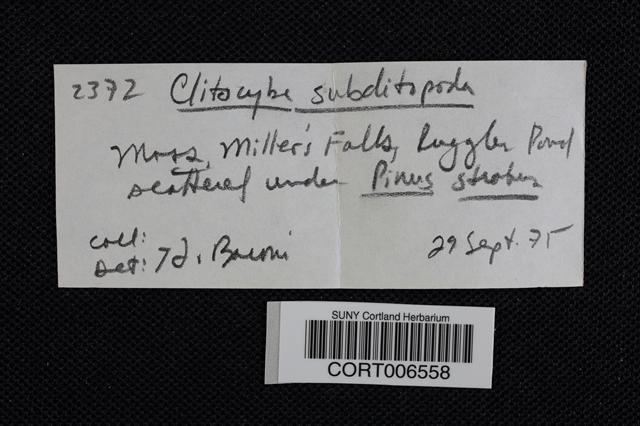 2372 Clitocybe subditopoda
Mass, Miller's Falls, Ruggles Pond
scattered under Pinus strobus
coll:
det: T.J. Baroni
29 Sept. 75
SUNY Cortland Herbarium
CORT006558